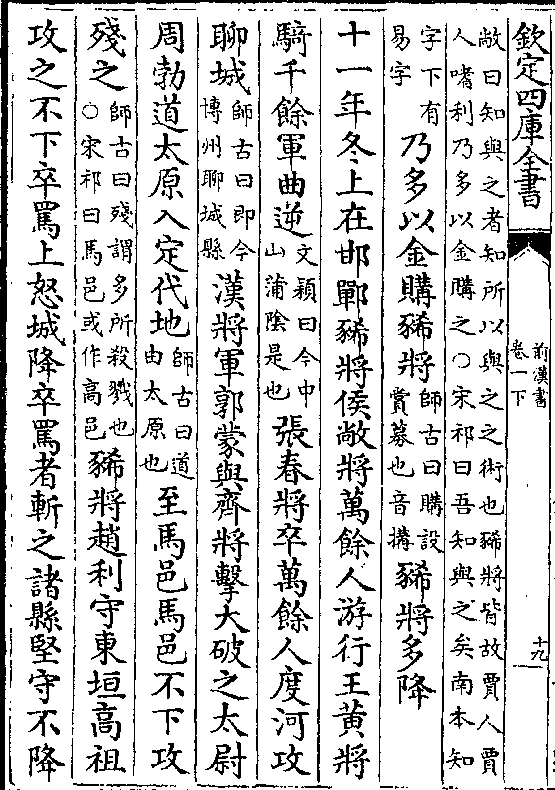 欽定四庫全書
前漢書
卷一下
十九
敞曰知與之者知所以與之之術也豨將皆故賈人賈
人嗜利乃多以金購之○宋祁曰吾知與之矣南本知
字下有
易字
乃多以金購豨將
師古曰購設
賞募也音搆
豨將多降
十一年冬上在邯鄲豨將侯敞將萬餘人游行王黃將
騎千餘軍曲逆
文穎曰今中
山蒲陰是也
張春將卒萬餘人度河攻
聊城
師古曰即今
博州聊城縣
漢將軍郭蒙與齊將擊大破之太尉
周勃道太原入定代地
師古曰道
由太原也
至馬邑馬邑不下攻
殘之
師古曰殘謂多所殺戮也
○宋祁曰馬邑或作高邑
豨將趙利守東垣高祖
攻之不下卒罵上怒城降卒罵者斬之諸縣堅守不降